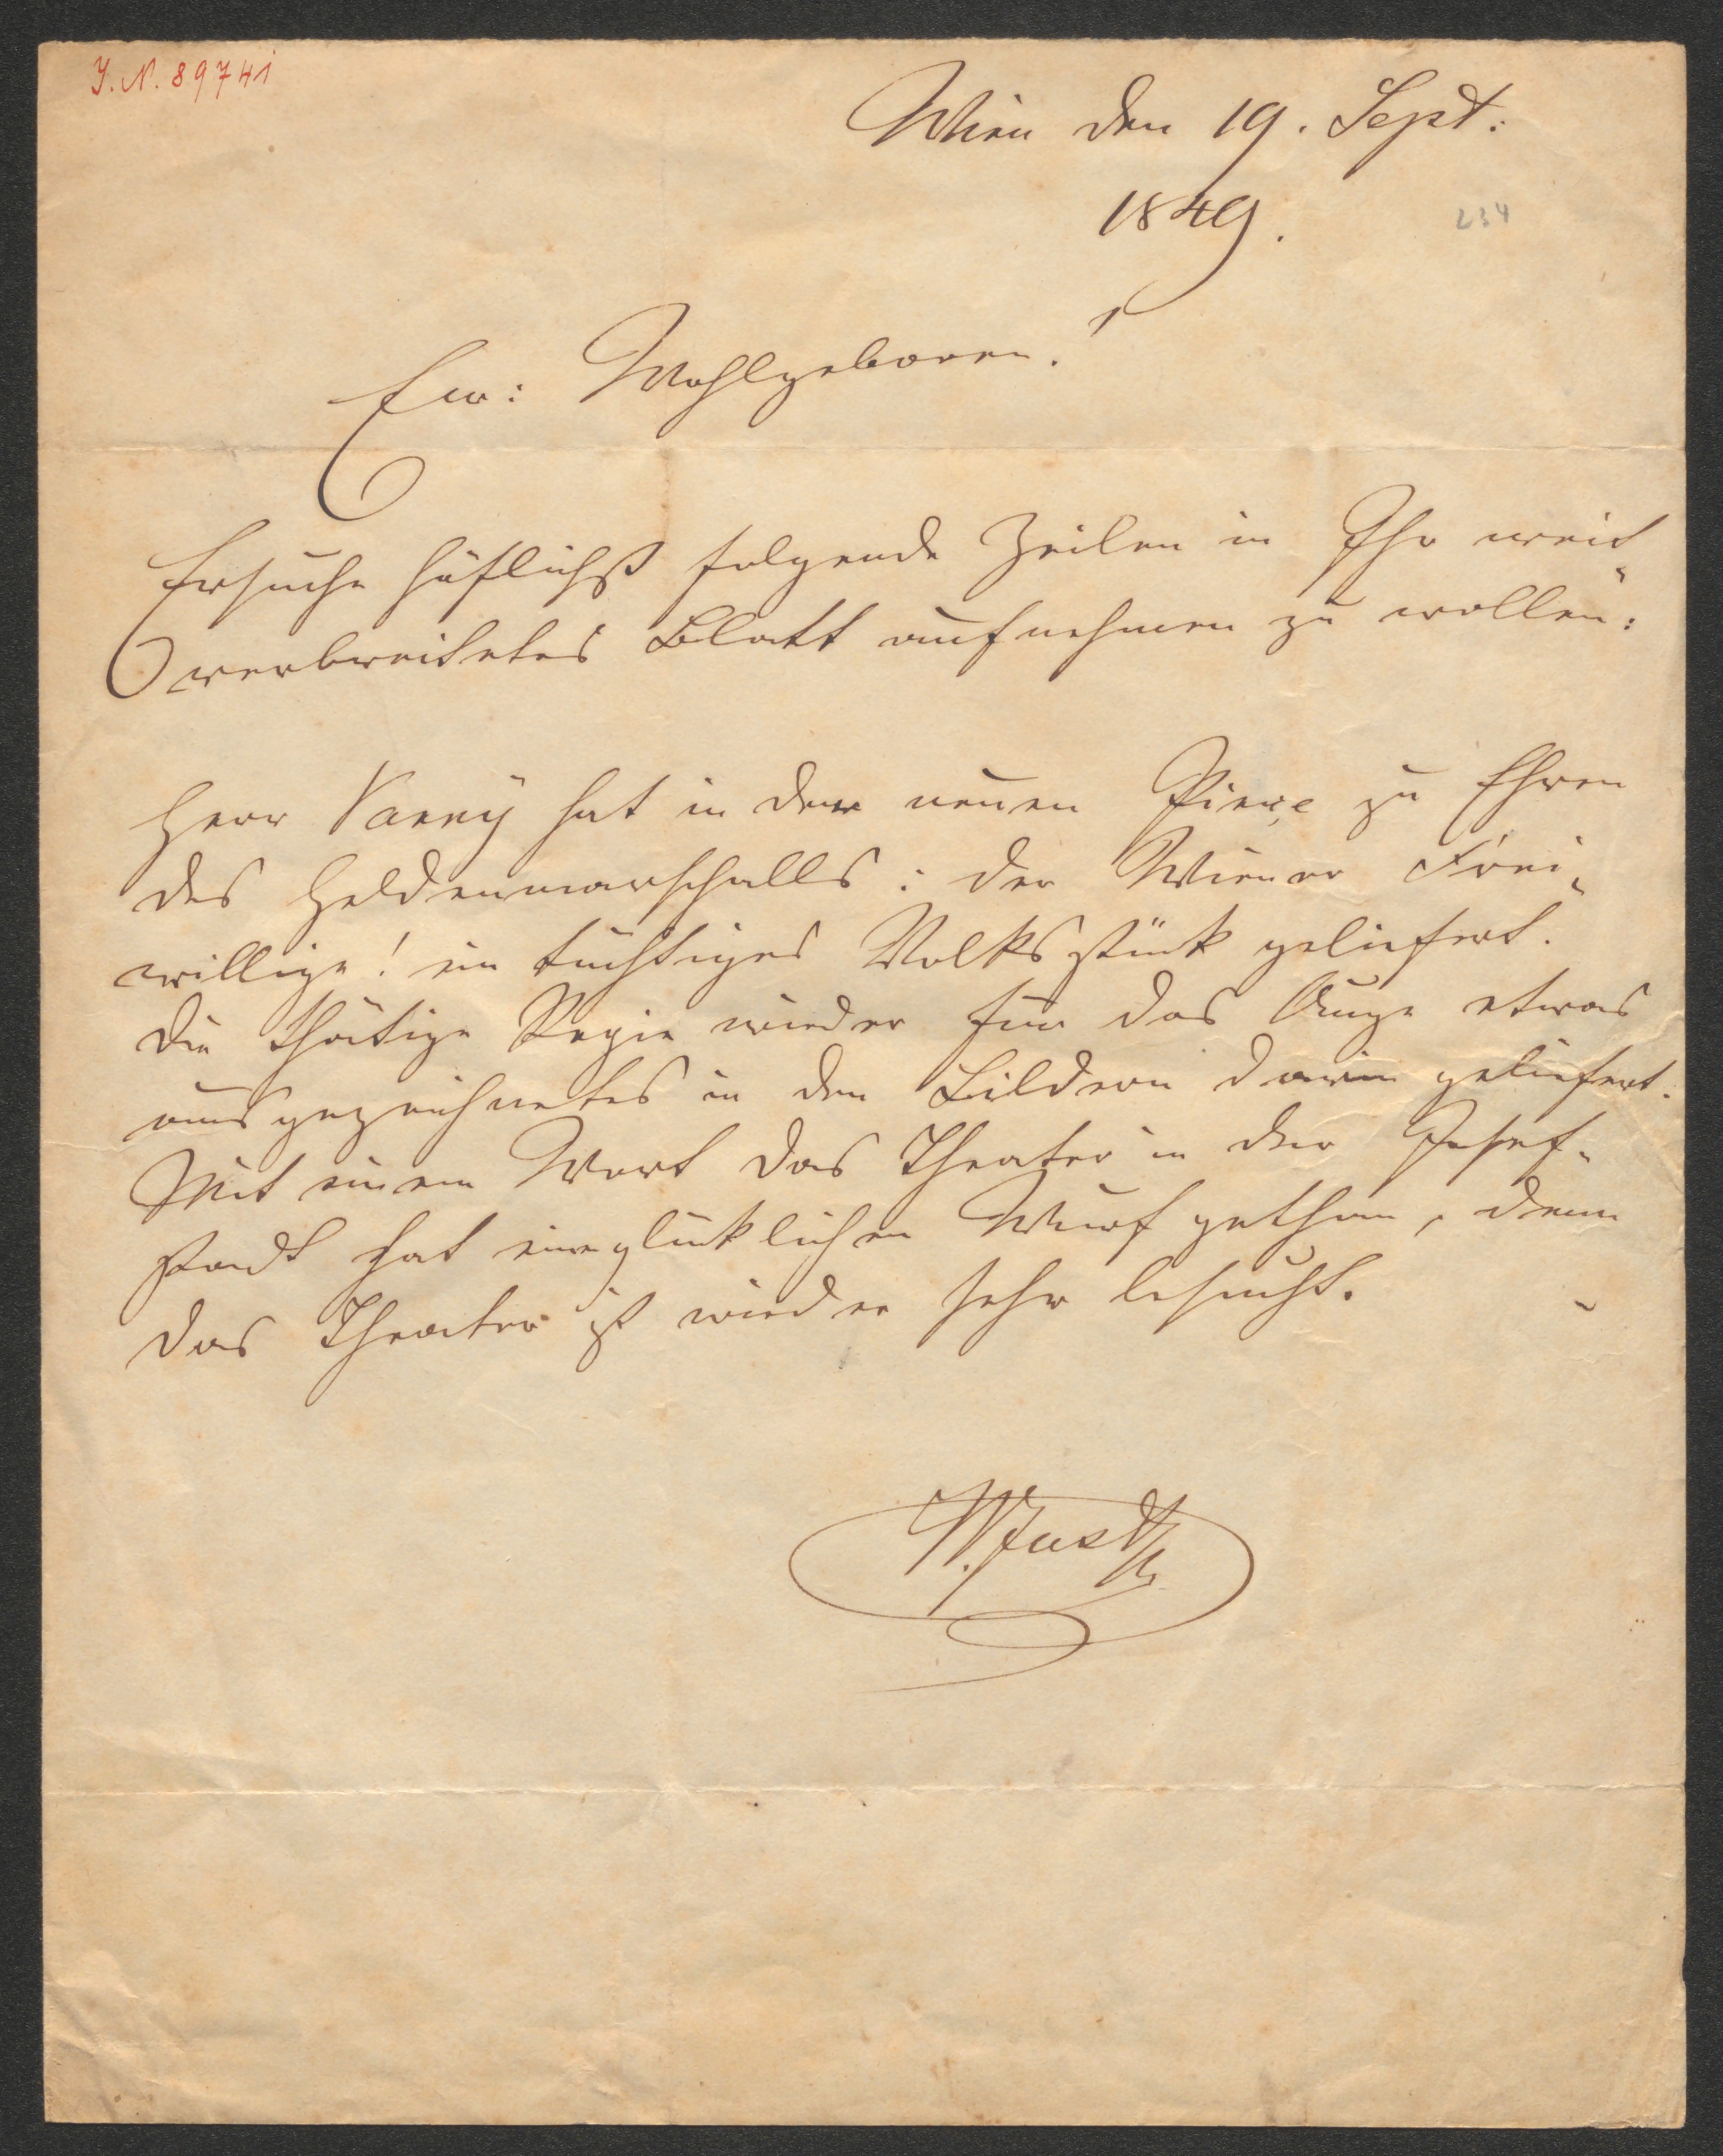 I. N. 89741
Wien den 19. Sept:
1849.
234
Ew: Wohlgeboren!
Ersuche höflichst folgende Zeilen in Ihr weit
verbreitetes Blatt aufnehmen zu wollen:
Herr Varry hat in der neuen Pieçe zu Ehren
des Heldenmarschalls: der Wiener Frei-
willige! ein tüchtiges Volksstück geliefert.
Die thätige Regie wieder für das Auge etwas
ausgezeichnetes in den Bildern darin geliefert.
Mit einem Wort das Theater in der Josef-
stadt hat einen glücklichen Wurf gethan, denn
das Theater ist wieder sehr besucht.
W. Just